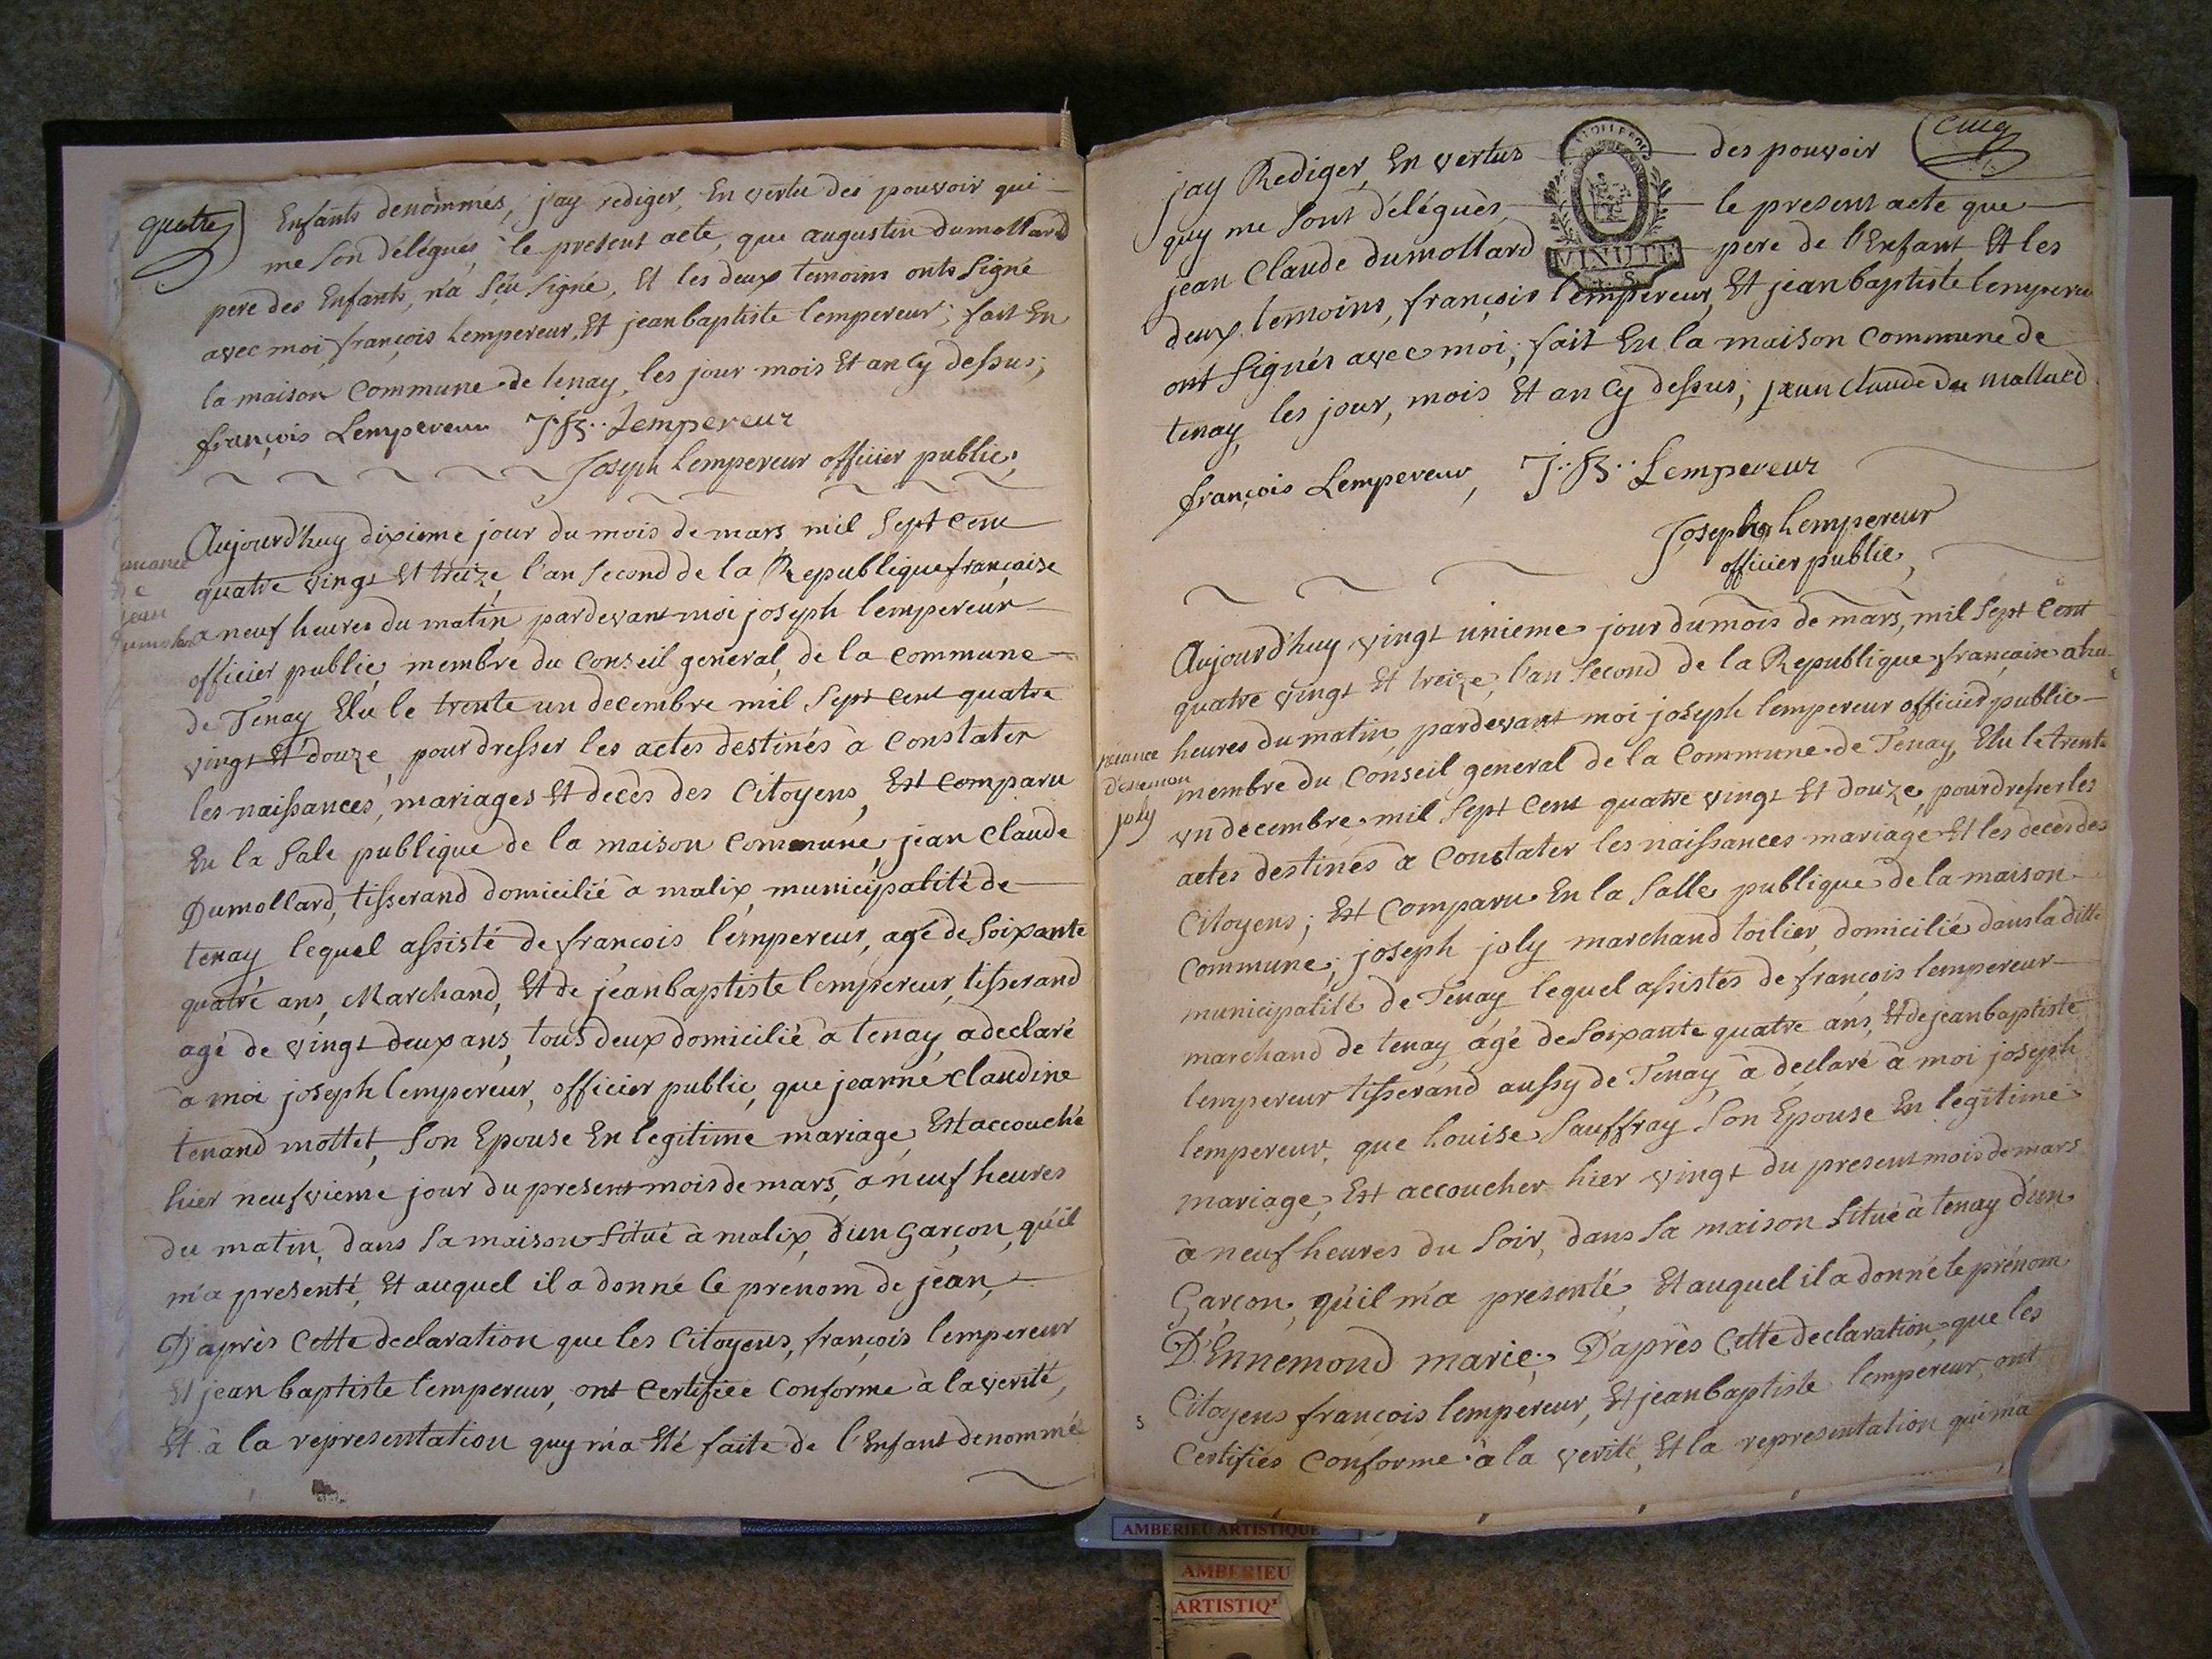 quatre
Enfants denommés, j'ay rediger, En vertu des pouvoir qui
me son délégués, le present acte, que augustin dumollard
pere des Enfants, n'a sçu signé, Et les deux temoins onts signé
avec moi, françois Lempereur, Et jean baptiste lempereur; fait En
la maison Commune de tenay, les jour mois Et an Cy dessus;
françois Lempereur J:B:. Lempereur
Joseph Lempereur officier public;
Aujourd'huy dixieme jour du mois de mars mil sept Cent
quatre vingt Et treize, l'an second de la Republique française
a neuf heures du matin pardevant moi joseph lempereur
officier public, membre du Conseil general, de la Commune
de Tenay Elu le trente un decembre mil sept cent quatre
vingt Et douze, pour dresser les actes destinés à Constater
les naissances, mariages Et decès des Citoyens, Est Comparu
En la sale publique de la maison Commune, jean Claude
Dumollard, tisserand domicilié à malix, municipalité de
tenay lequel assisté de françois l'empereur, agé de soixante
quatre ans, Marchand, Et de jean baptiste lempereur, tisserand
agé de vingt deux ans, tous deux domicilié a tenay, a declaré
à moi joseph lempereur, officier public, que jeanne claudine
tenand mottet, son Epouse En legitime mariage, Est accouché
hier neufvieme jour du present mois de mars, a neuf heures
du matin, dans sa maison situé a malix, d'un Garçon, qu'il
m'a presenté, Et auquel il a donné le prenom de jean,
D'après Cette declaration que les Citoyens, françois lempereur
Et jean baptiste lempereur, ont Certifiée Conforme à la verité,
Et à la representation quy m'a Eté faite de l'Enfant denommé
jean
cinq
j'ay Rediger, En vertus des pouvoir
quy me sont délégués, le present acte que
jean Claude dumollard pere de l'Enfant Et les
MINUTE
deux temoins, françois l'empereur, Et jean baptiste lempereur
ont signés avec moi; fait En la maison Commune de
tenay, les jour, mois Et an Cy dessus; jean claude du mollard
françois Lempereur, J:.B:. Lempereur
Joseph Lempereur
officier public,
Aujourd'huy vingt unieme jour du mois de mars, mil sept Cent
quatre vingt Et treize, l'an second de la Republique française a
heures du matin, pardevant moi joseph lempereur officier public
membre du Conseil general de la Commune de Tenay, Elu le trente
un decembre mil sept Cent quatre vingt Et douze, pour dresser les
actes destinés à Constater les naissances mariage Et les decès des
Citoyens; Est Comparu En la salle publique de la maison
Commune; joseph joly marchand toilier, domicilié dans la ditte
municipalité de Tenay lequel assistés de françois lempereur
marchand de tenay, agé de soixante quatre ans, Et de jean baptiste
lempereur tisserand aussy de Tenay, à declaré à moi joseph
lempereur, que Louise Sauffray son Epouse En legitime
mariage, Est accoucher hier vingt du present mois de mars
à neuf heures du soir, dans sa maison situé à tenay d'un
Garçon, qu'il m'a presenté, Et auquel il a donné le prénom
D'Ennemond marie; D'après Cette declaration, que les
Citoyens françois lempereur, Et jean baptiste lempereur, ont
Certifiés Conforme à la verité, Et la representation qui m'a
joly
5
AMBERIEU ARTISTIQUE
AMBERIEU